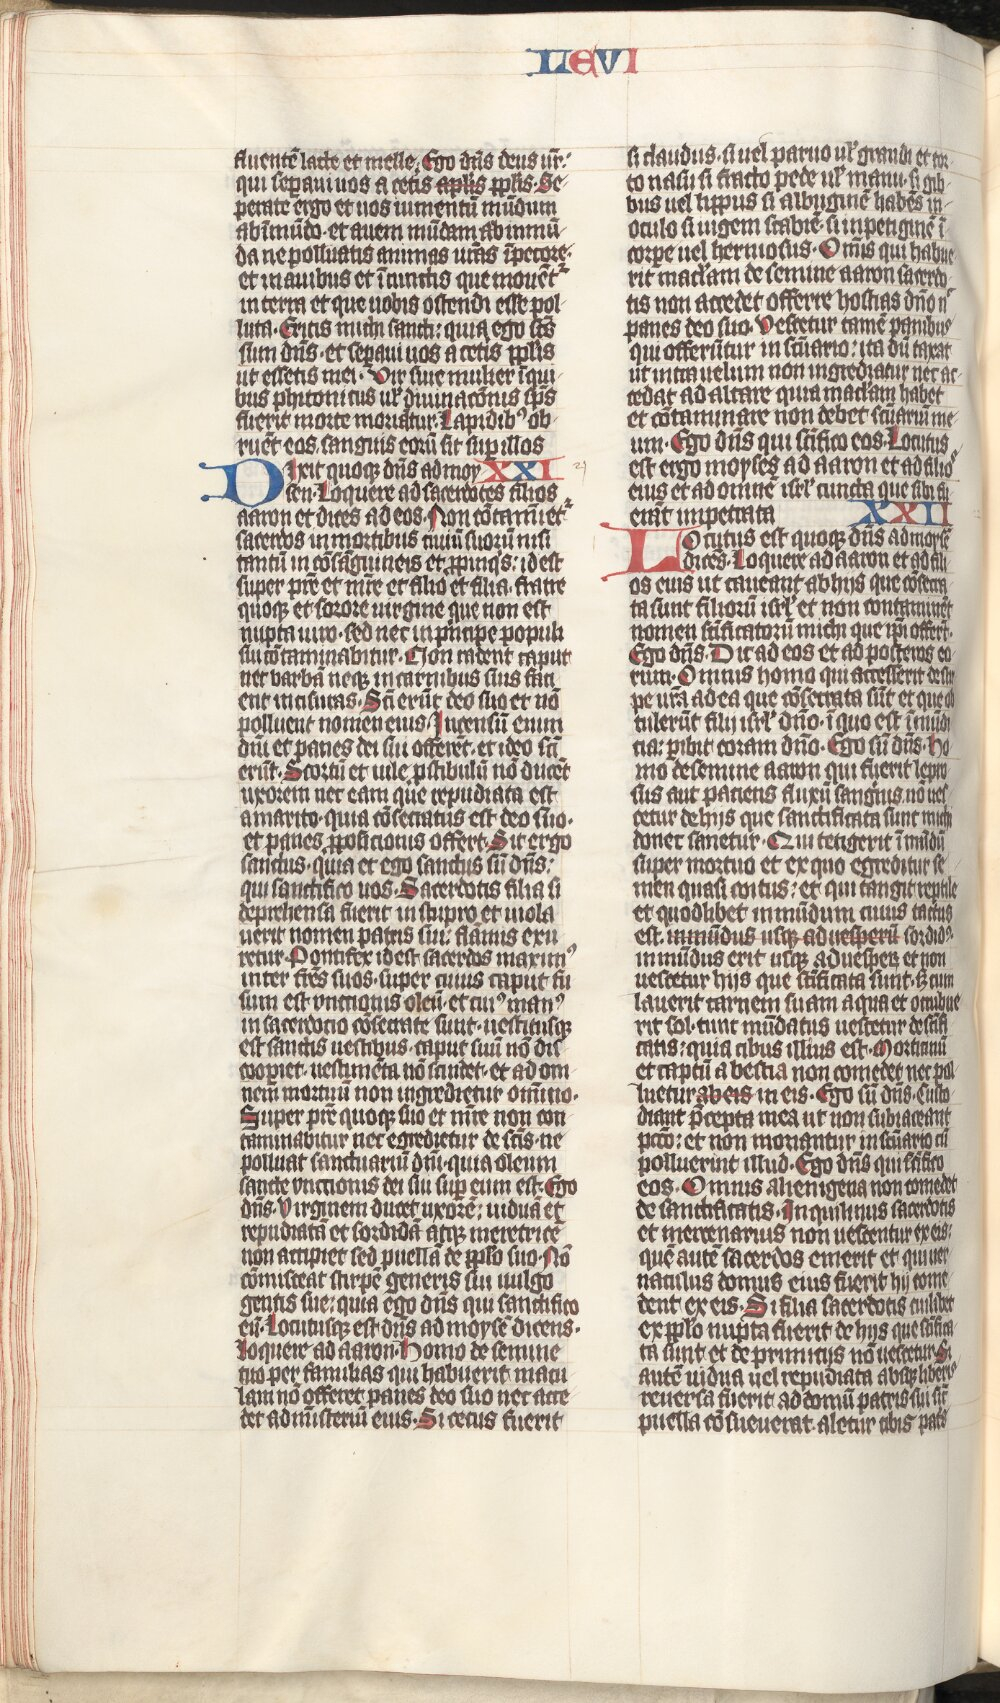 LEVI
fluentē lacte et melle. Ego dn̄s deus vr̄:
qui sepaui uos a cetis aplis pplis. Se-
perate ergo et uos iumentū mūdum
ab īmūdo. et auem mūdam ab inmū-
da ne polluatis animas vrās ī pecore.
et in auibus et ī cunctis que mouēt
in terra et que uobis ostendi esse pol-
luta. Eritis michi sancti: quia ego scs
sum dn̄s. et sepaui uos a cetis pplis
ut essetis mei. Vir siue mulier ī qui-
bus phitonicus ul' diuinacōnis sp̄s
fuerit morte moriatur. Lapidib9 ob-
ruēt eos. sanguis eorū sit sup illos
Dixit quoq3 dn̄s ad moy XXI 21
sen. Loquere ad sacerdotes filios
aaron et dices ad eos. Non cōtamīet'
sacerdos in mortibus ciuiū suorū nisi
tantū in cōsāguineis et ppinq's: id est
super pr̄e et mr̄e et filio et filia. fratre
quoq3 et sorore uirgine que non est
nupta uiro. sed nec in p'ncipe populi
sui cōtaminabitur. Non radent caput
nec barbā neq3 in carnibus suis faci-
ent incisuras. Sc̄i erūt deo suo et nō
polluent nomen eius. Incensū enim
dn̄i et panes dei sui offeret. et ideo sc̄i
erūt. Scortū et uile p'stibulū nō ducēt
uxorem nec eam que repudiata est
a marito. quia cōsecratus est deo suo.
et panes pposicionis offert. Sit ergo
sanctus. quia et ego sanctus sū dn̄s:
qui sanctifico uos. Sacerdotis filia si
deprehensa fuerit in stupro et uiola
uerit nomen patris sui: flāmis exu
retur. Pontifex id est sacerdos maxim9
inter fr̄es suos. super cuius caput fu
sum est vnctionis oleū. et cui9 man9
in sacerdocio cōsecrate sunt. uestitusq3
est sanctis uestibus. caput suū nō dis
coopiet. uestimēta nō scindet. et ad om
nem mortuū non ingredietur omīno.
Super pr̄e quoq3 suo et mr̄e non con
taminabitur nec egredietur de scīs. ne
polluat sanctuariū dn̄i. quia oleum
sancte vnctionis dei sui sup eum est. Ego
dn̄s. Virginem ducet uxorē: uiduā et
repudiatā et sordidā atq3 meretricē
non accipiet sed puellā de pplo suo. Nō
cōmisceat stirpē generis sui uulgo
gentis sue: quia ego dn̄s qui sanctifico
eū. Locutusq3 est dn̄s ad moysē dicens.
Loquere ad aaron. Homo de semine
tuo per familias qui habuerit macu
lam nō offeret panes deo suo nec acce
det ad misteriū eius. Si cecus fuerit
si claudus. si uel paruo ul' grandi et tor-
to naso si fracto pede ul' manu. si gib-
bus uel lippus si albuginē habēs in
oculo si iugem scabiē. si inpetiginē ī
corpe uel herniosus. Omīs qui habue
rit maclam de semine aaron sacerdo
tis non accedet offerre hostias dn̄o n'
panes deo suo. Vescetur tamē panibus
qui offerūtur in scūario: ita dū taxat
ut intra uelum non ingrediatur nec ac
cedat ad altare quia maclam habet
et cōtaminare non debet scūariū me
um. Ego dn̄s qui scīfico eos. Locutus
est ergo moyses ad aaron et ad filios
eius et ad omnē isrl' cuncta que sibi fu
erāt impetrata XXII
Locutus est quoq3 dn̄s ad moysē
dicēs. Loquere ad aaron et ad fili
os eius ut caueant ab hijs que cōsecra
ta sunt filiorū isrl' et non contaminēt
nomen scīficatorū michi que ip̄i offerūt.
Ego dn̄s. Dic ad eos et ad posteros eo
rum. Omnis homo qui accesserit de stir
pe vrā ad ea que cōsecrata sūt et que ob
tulerūt filij isrl' dn̄o. ī quo est īmūdi
cia: pibit coram dn̄o. Ego sū dn̄s. Ho
mo de semine aaron qui fuerit lepro
sus aut paciens fluxū sanguīs. nō ues
cetur de hijs que sanctificata sunt michi
donec sanetur. Qui tetigerit īmūdū
super mortuo et ex quo egreditur se
men quasi coitus: et qui tangit reptile
et quodlibet inmūdum cuius tactus
est. inmūdus usq3 ad uesperū sordid9.
inmūdus erit usq3 ad uesperū et non
uescetur hijs que scīficata sunt. s3 cum
lauerit carnem suam aqua et occubue
rit sol. tunc mūdatus uescetur de scīfi
catis: quia cibus illius est. Morticinū
et captū a bestia non comedet nec pol
luetur ab eis in eis. Ego sū dn̄s. Custo
diant p̄cepta mea ut non subiaceant
pccō: et non moriantur in scūario cū
polluerint illud. Ego dn̄s qui scīfico
eos. Omnis alienigena non comedet
de sanctificatis. Inquilinus sacerdotis
et mercenarius non uescentur ex eis:
quē autē sacerdos emerit et qui uer
naculus domus eius fuerit hij come
dent ex eis. Si filia sacerdotis cuilibet
ex pplo nupta fuerit de hijs que scīfica
ta sunt et de primicijs nō uescetur. Si
autē uidua uel repudiata absq3 liberis
reuersa fuerit ad domū patris sui sic'
puella cōsueuerat. aletur cibis pat's